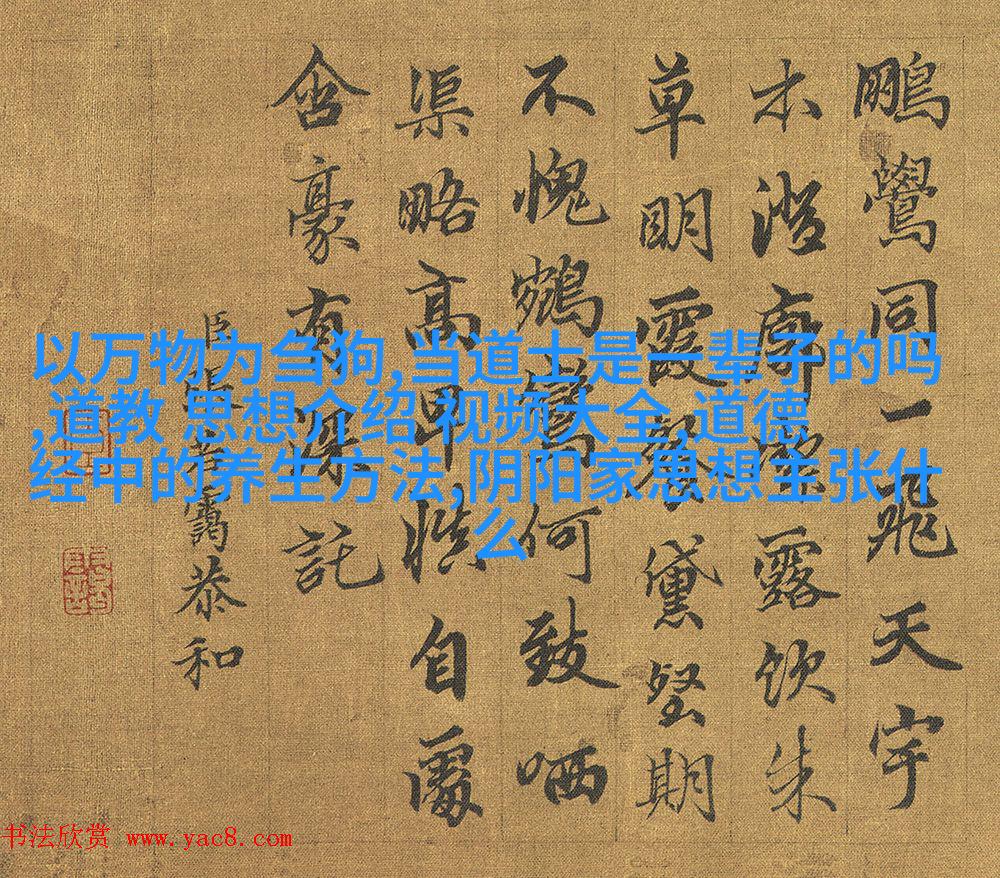 以万物为刍狗,当道士是一辈子的吗
,道教 思想介绍 视频大全,道德
经中的养生方法,阴阳家思想主张什
么
鵬鷽同一飛天宇
木澄廓潔露飲朱
草明霞餐黛壑期
不愧鶴何致哂
渠略高卑慎自
含豪有深託
臣張若靄恭和
书法欣赏 www.yac8.com